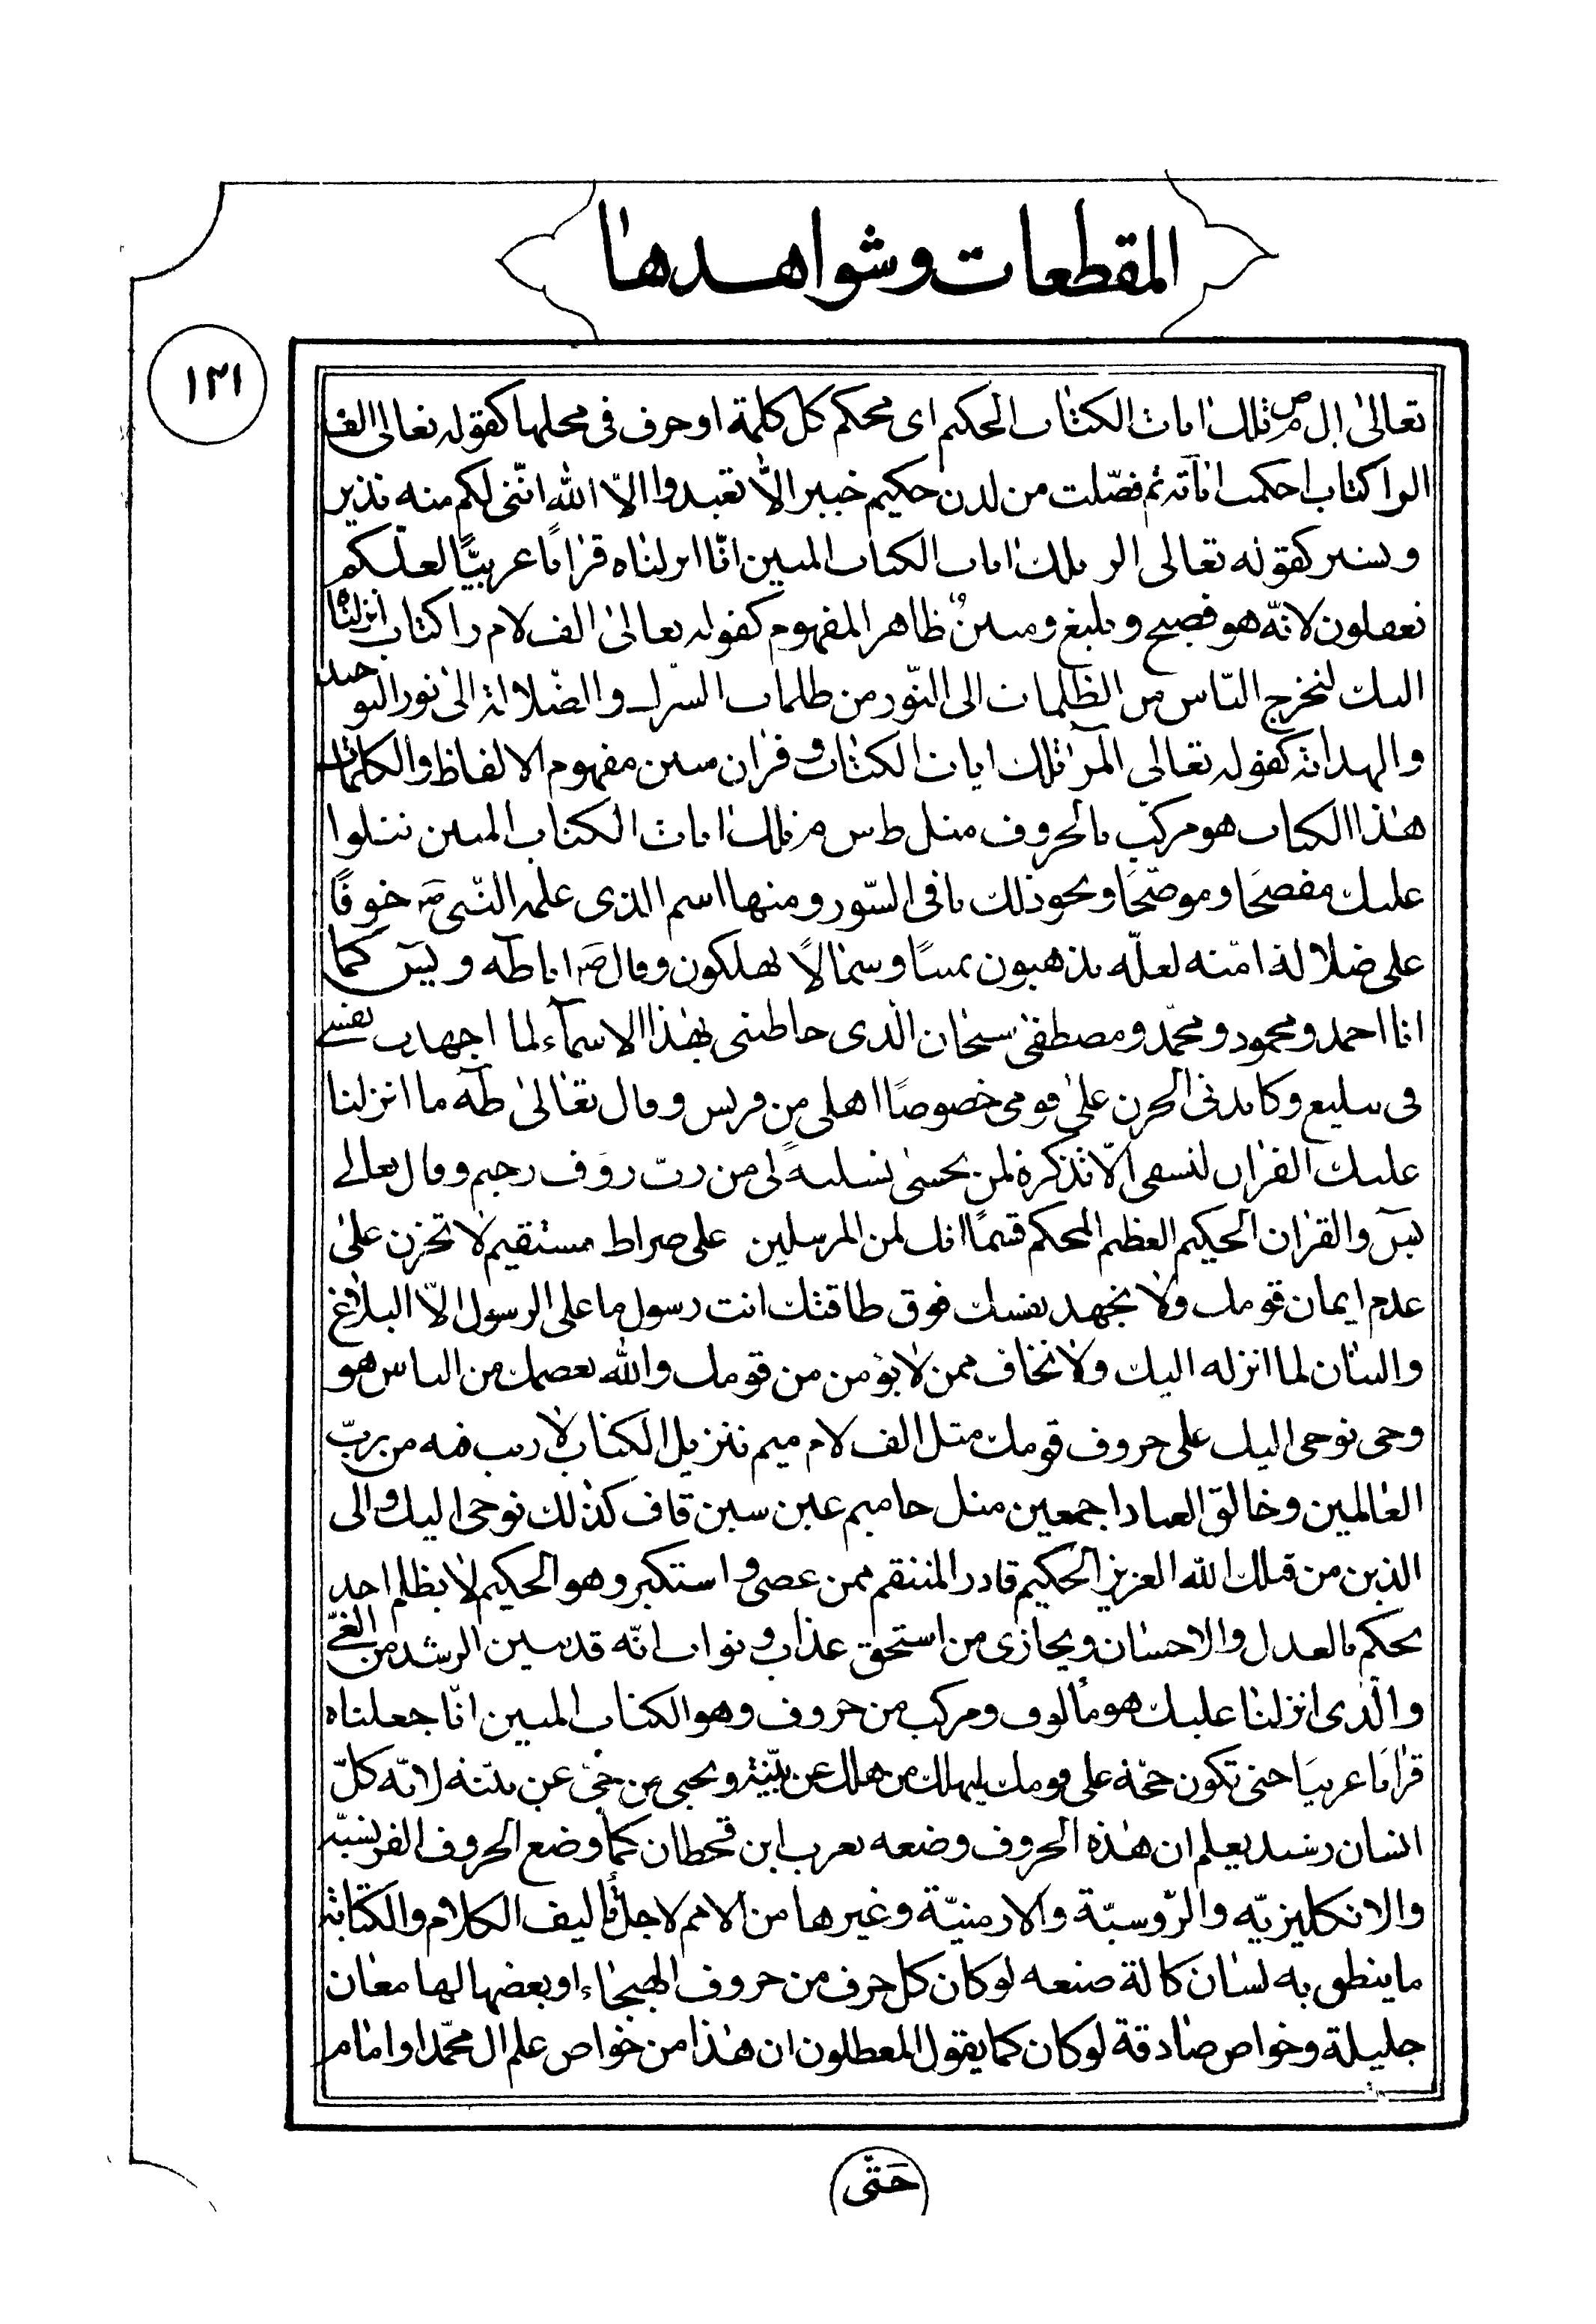 المقطعات وشواهدها
١٢١
تعالى ال م ص تلك ايات الكتاب الحكيم اى محكم كل كلمة او حرف فى محلها كقوله تعالى الف
الرا كتاب احكمت اياته ثم فصّلت من لدن حكيم خبير الّا تعبدوا الّا الله انّنى لكم منه نذير
وبشير كقوله تعالى الر تلك ايات الكتاب المبين انّا انزلناه قرانًا عربيًّا لعلّكم
تعقلون لانّه هو فصيح وبليغ ومبين ظاهر المفهوم كقوله تعالى الف لام را كتاب انزلناه
اليك لتخرج النّاس من الظلمات الى النّور من ظلمات الشرك والضلالة الى نور التوحيد
والهداية كقوله تعالى المر تلك ايات الكتاب وقران مبين مفهوم الالفاظ والكلمات
هذا الكتاب هو مركّب بالحروف مثل ط س م تلك ايات الكتاب المبين نتلوا
عليك مفصحًا وموضّحًا ونحو ذلك يا فى السّور ومنها اسم الذى علمه النّبى صه خوفًا
على ضلالة امّته لعلّه يذهبون يمينًا وشمالًا يهلكون وقال صه انا طه ويس كما
انا احمد ومحمود ومحمّد ومصطفى سبحان الّذى خاطبنى بهذا الاسماء لما اجهدت نفسى
فى تبليغ وكابدنى الحزن على قومى خصوصًا اهلى من قريش وقال تعالى طه ما انزلنا
عليك القران لتشقى الّا تذكرة لمن يخشى تسلية لى من ربّ رؤف رحيم وقال تعالى
يس والقران الحكيم العظيم المحكم قسمًا انك لمن المرسلين على صراط مستقيم لا تحزن على
عدم ايمان قومك ولا تجهد نفسك فوق طاقتك انت رسول ما على الرسول الّا البلاغ
والبيان لما انزله اليك ولا تخاف ممن لا يؤمن من قومك والله يعصمك من الناس هو
وحى نوحى اليك على حروف قومك مثل الف لام ميم تنزيل الكتاب لا ريب فيه من ربّ
العالمين وخالق العباد اجمعين مثل حا ميم عين سين قاف كذلك نوحى اليك والى
الذين من قبلك الله العزيز الحكيم قادر المنتقم ممن عصى واستكبر وهو الحكيم لا يظلم احد
يحكم بالعدل والاحسان ويجازى من استحق عذاب وثواب انّه قد تبين الرشد من الغىّ
والّذى انزلنا عليك هو مألوف ومركب من حروف وهو الكتاب المبين انّا جعلناه
قرانًا عربيًا حتى تكون حجّة على قومك ليهلك من هلك عن بيّنة ويحيى من حىّ عن بيّنة لانّه كلّ
انسان رشيد يعلم ان هذه الحروف وضعه يعرب ابن قحطان كما وضع الحروف الفرنسيّة
والانكليزيّه والرّوسيّة والارمنيّة وغيرها من الامم لاجل تأليف الكلام والكتابة
ما ينطق به لسان كالة صنعه لو كان كل حرف من حروف الهجاء او بعضها لها معان
جليلة وخواص صادقة لو كان كما يقول المعطلون ان هذا من خواص علم ال محمّد او امام
حَتّى